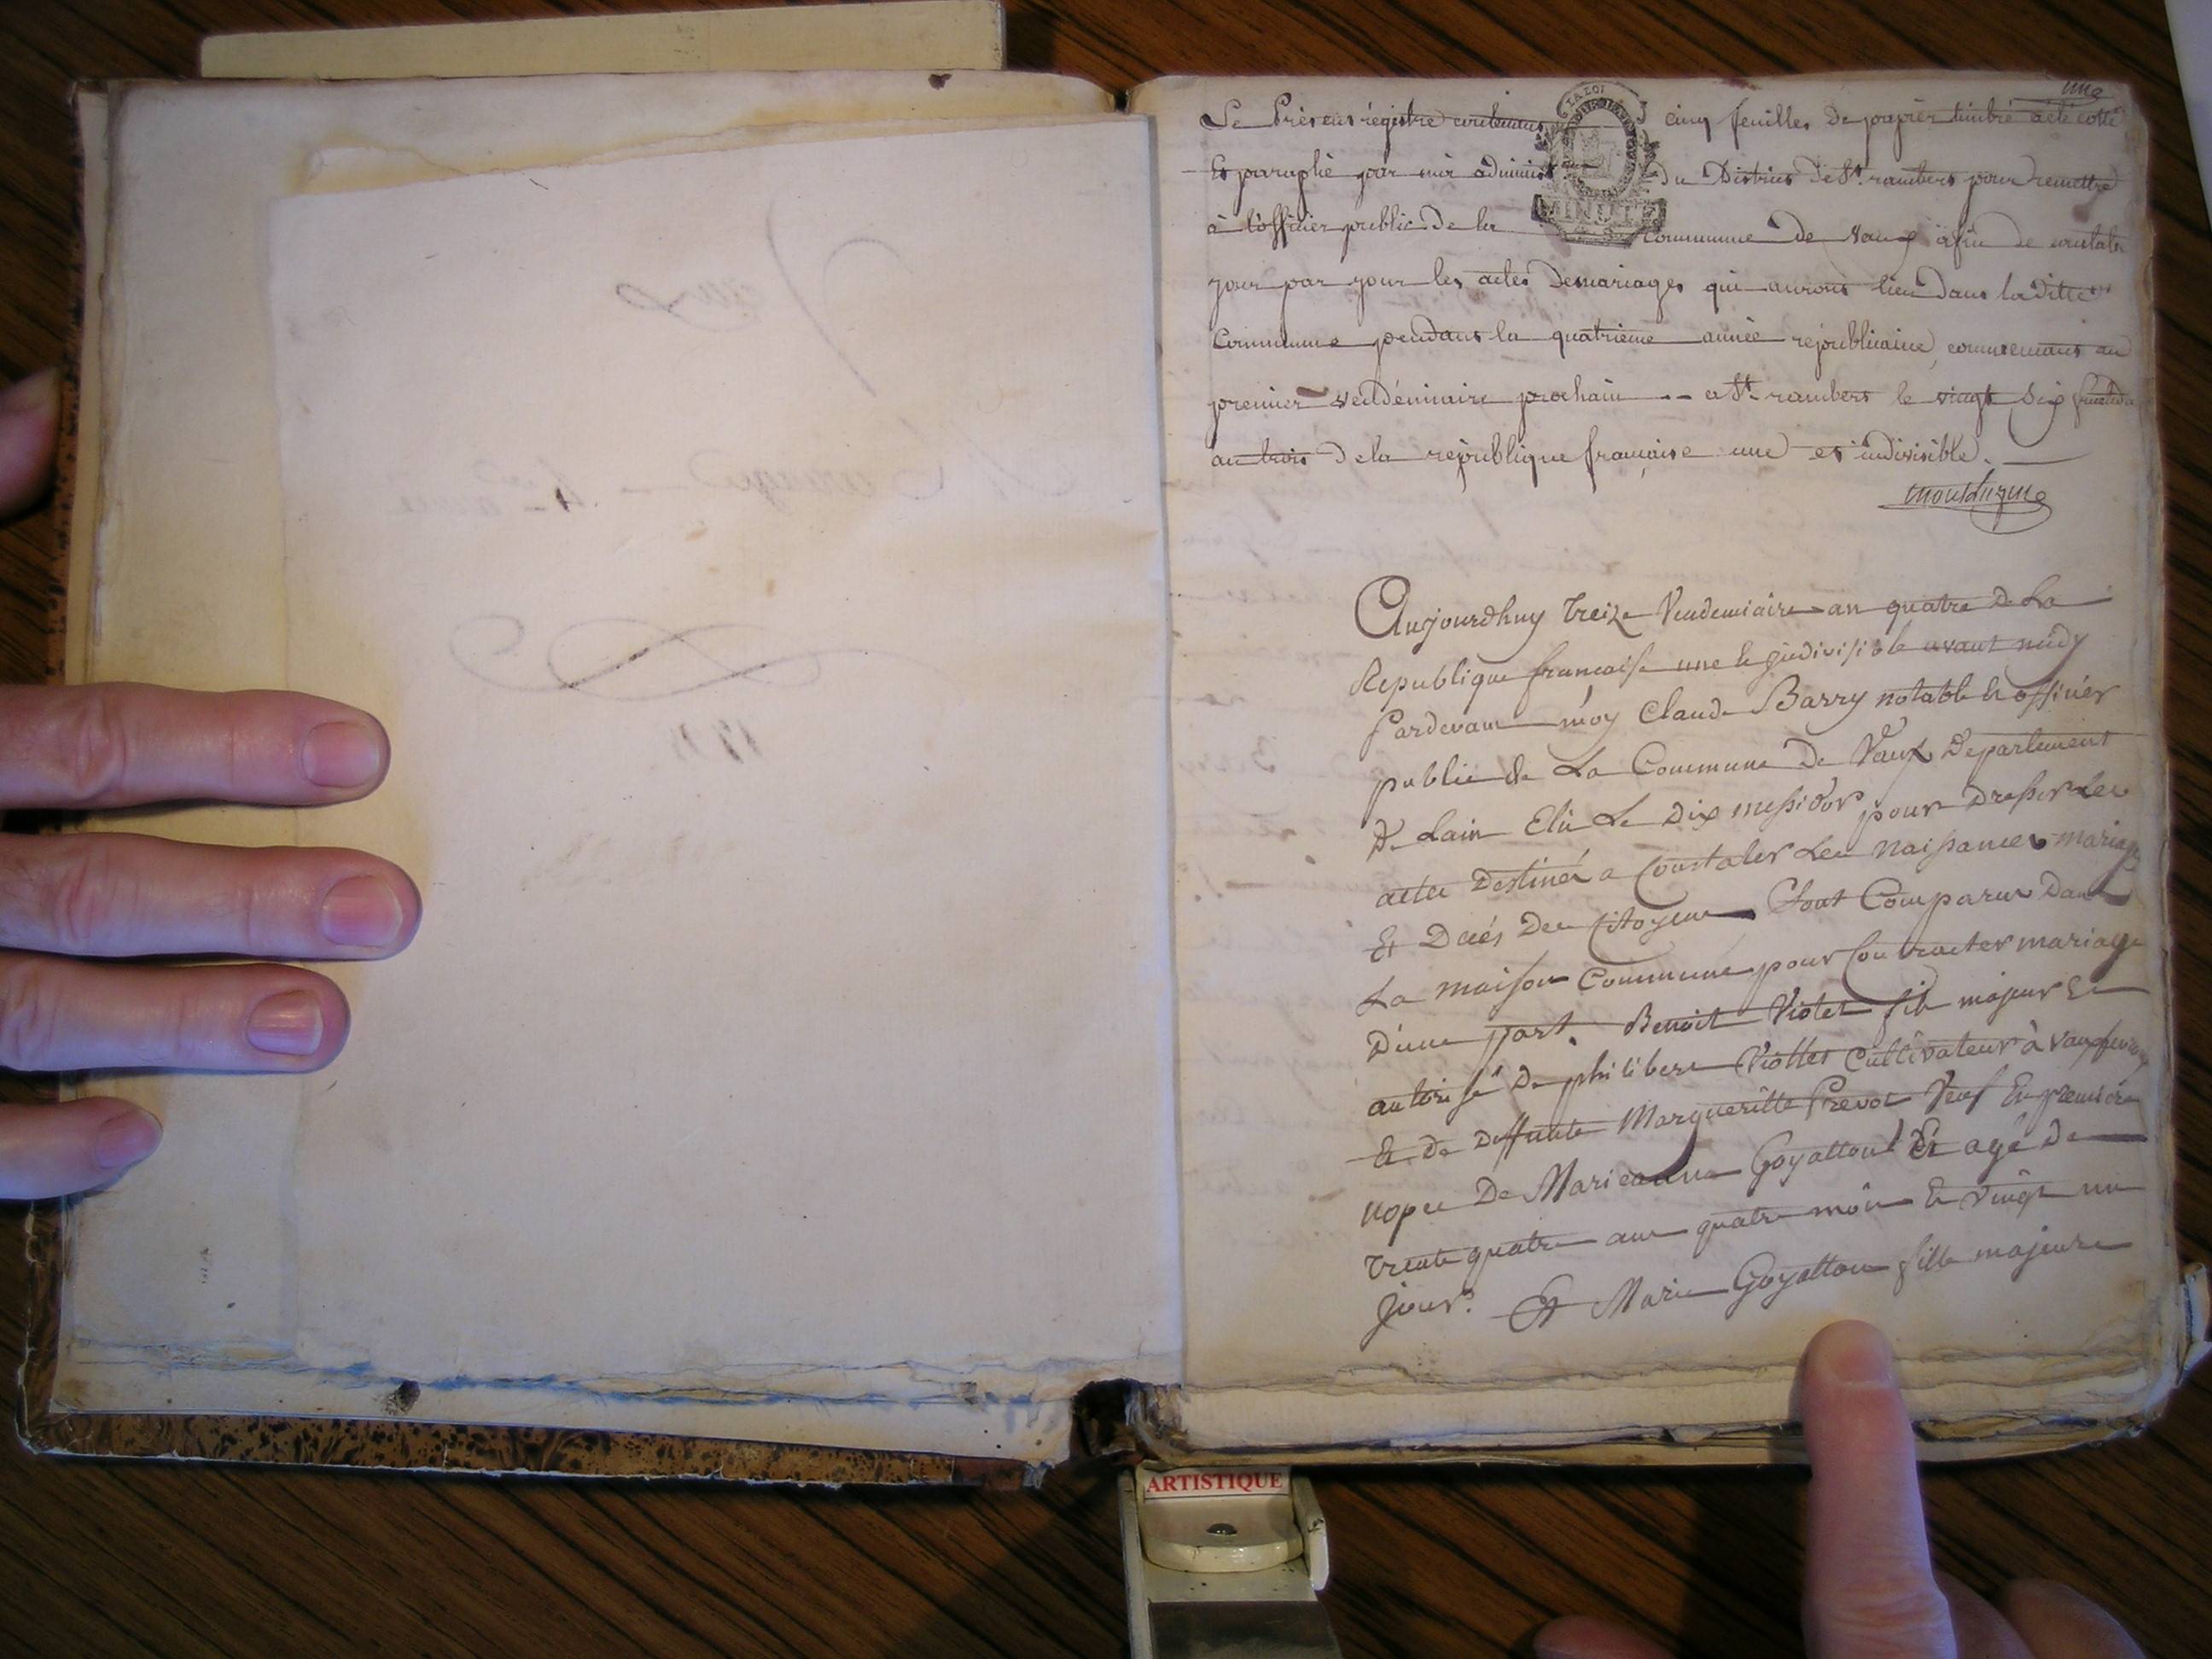 une
Le Présent régistre contenant cinq feuilles de papier timbré a été cotté
Et paraphé par moi administ du District de St. rambert pour remettre
à l'officier public de la commune de Vaux afin de constater
jour par jour les actes de mariages qui auront lieu dans la ditte
Commune pendant la quatrième année républicaine, commencant au
premier vendémiaire prochain -- a St. rambert le vingt six fructidor
an trois de la république francaise une et indivisible.
LA LOI
MINUTE
Aujourdhuy treize Vendemiaire an quatre de La
Republique francaise une et jndivisible avant midy
Pardevant moy Claude Barry notable et officier
public de La Commune de Vaux Departement
De Lain Elû Le dix messidor pour dresser Les
actes Destinés a Constater Les Naissances mariages
Et Décés Des Citoyens Sont Comparus Dans
La maison Commune pour Contracter mariage
D'une part. Benoit Violet fils majeur Et
autorisé De philibert Viollet Cultivateur à vaux
Et De deffunte Margueritte Prevot Veuf En premiere
nopce De Marieanne Goyatton Et agé De
trente quatre ans quatre mois Et vingt un
jour. Et Marie Goyatton fille majeure
Vaux
Mariages 4me année
ARTISTIQUE